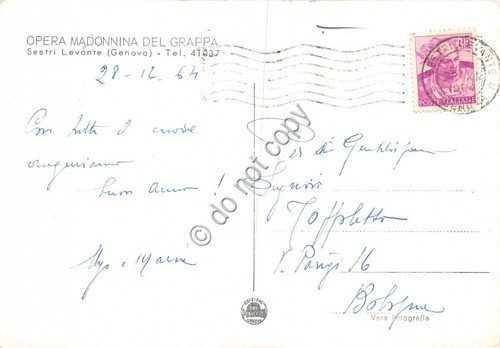 OPERA MADONNINA DEL GRAPPA
Sestri Levante (Genova) - Tel. 41037
28-12-64
Con tutto il cuore
auguriamo
buon anno!
e Maria
Per i Gentilissimi
Signori
Toffoletto
V. Parigi 16
Bologna
Vera Fotografia
POSTE ITALIANE
EDIZIONE
GENOVA
do not copy